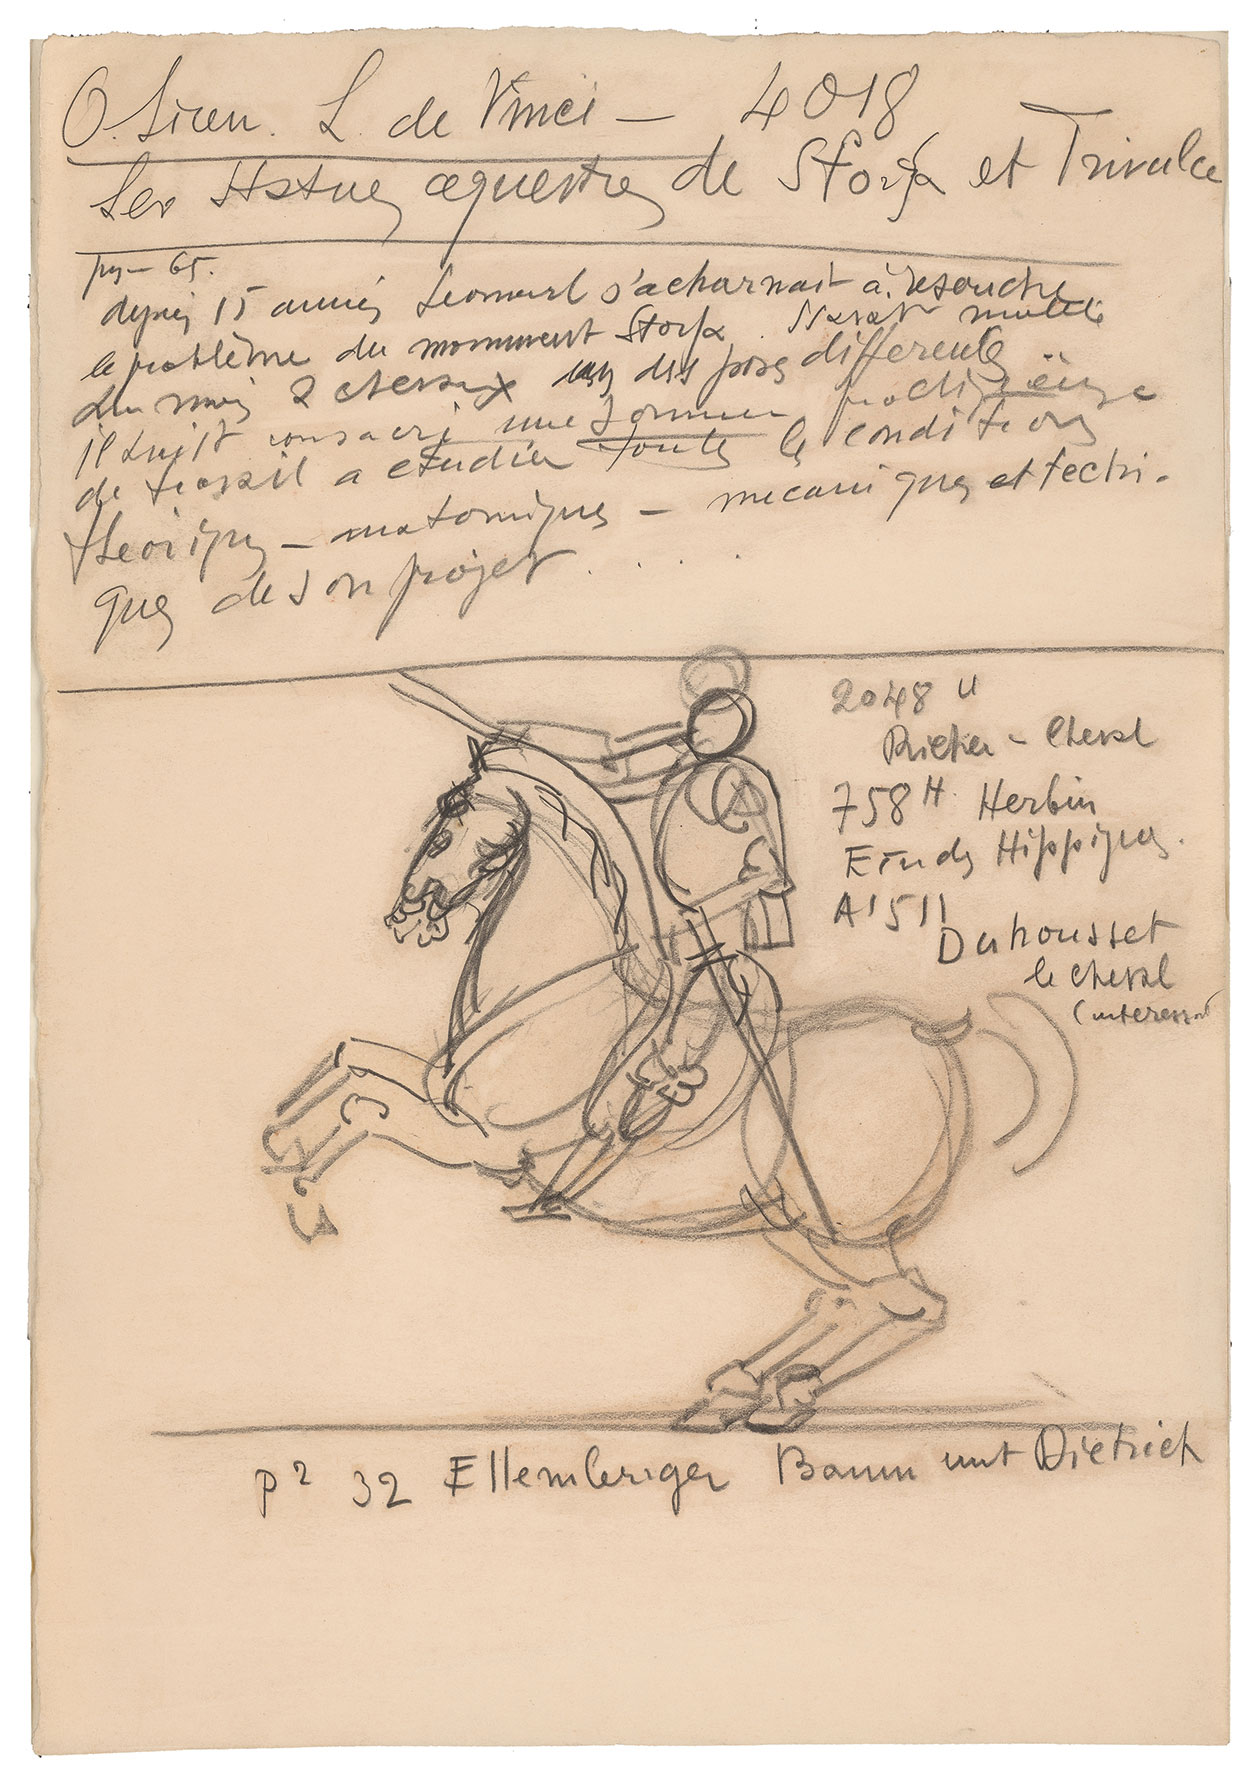 O. Siren. L. de Vinci — 4018
Les Statues equestres de Sforza et Trivulce
pg — 65.
depuis 15 années Leonard s'acharnait à resoudre
le problème du monument Sforza. Il avait modelé
au moins 2 chevaux dans des poses differents
il avait consacré une somme prodigieuse
de travail a etudier toutes les conditions
theoriques — anatomiques — mecaniques et techni-
ques de son projet . . . .
2048 U
Richer — Cheval
758 H Herbin
Etudes Hippiques.
A 1511
Duhousset
le cheval
(interessant
p2 32 Ellemberger Baum unt Dietrich